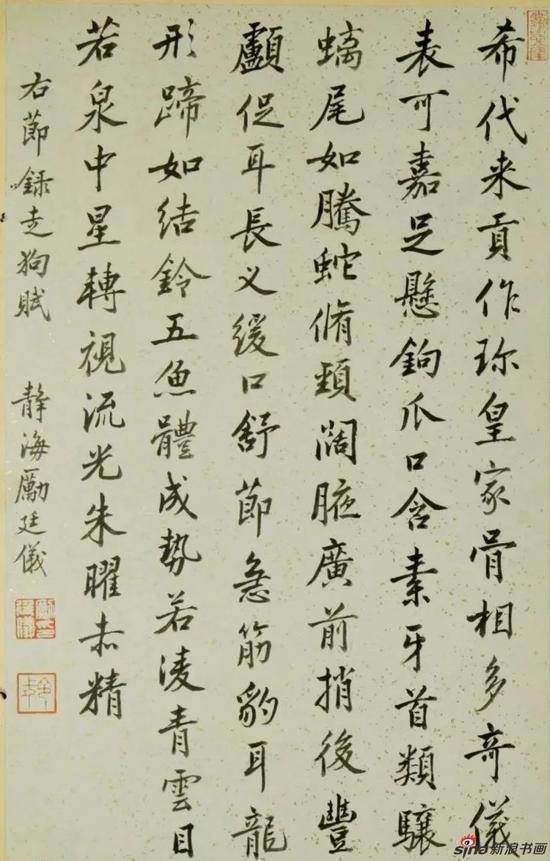 希代来貢作珎皇家骨相多竒儀
表可嘉足懸鉤爪口含素牙首類驤
螭尾如騰蛇脩頸闊腋廣前捎後豐
顱促耳長义緩口舒節急筋豹耳龍
形蹄如結鈴五魚體成勢若凌青雲目
若泉中星轉視流光朱曜赤精
右節録走狗賦 静海勵廷儀
sina新浪书画